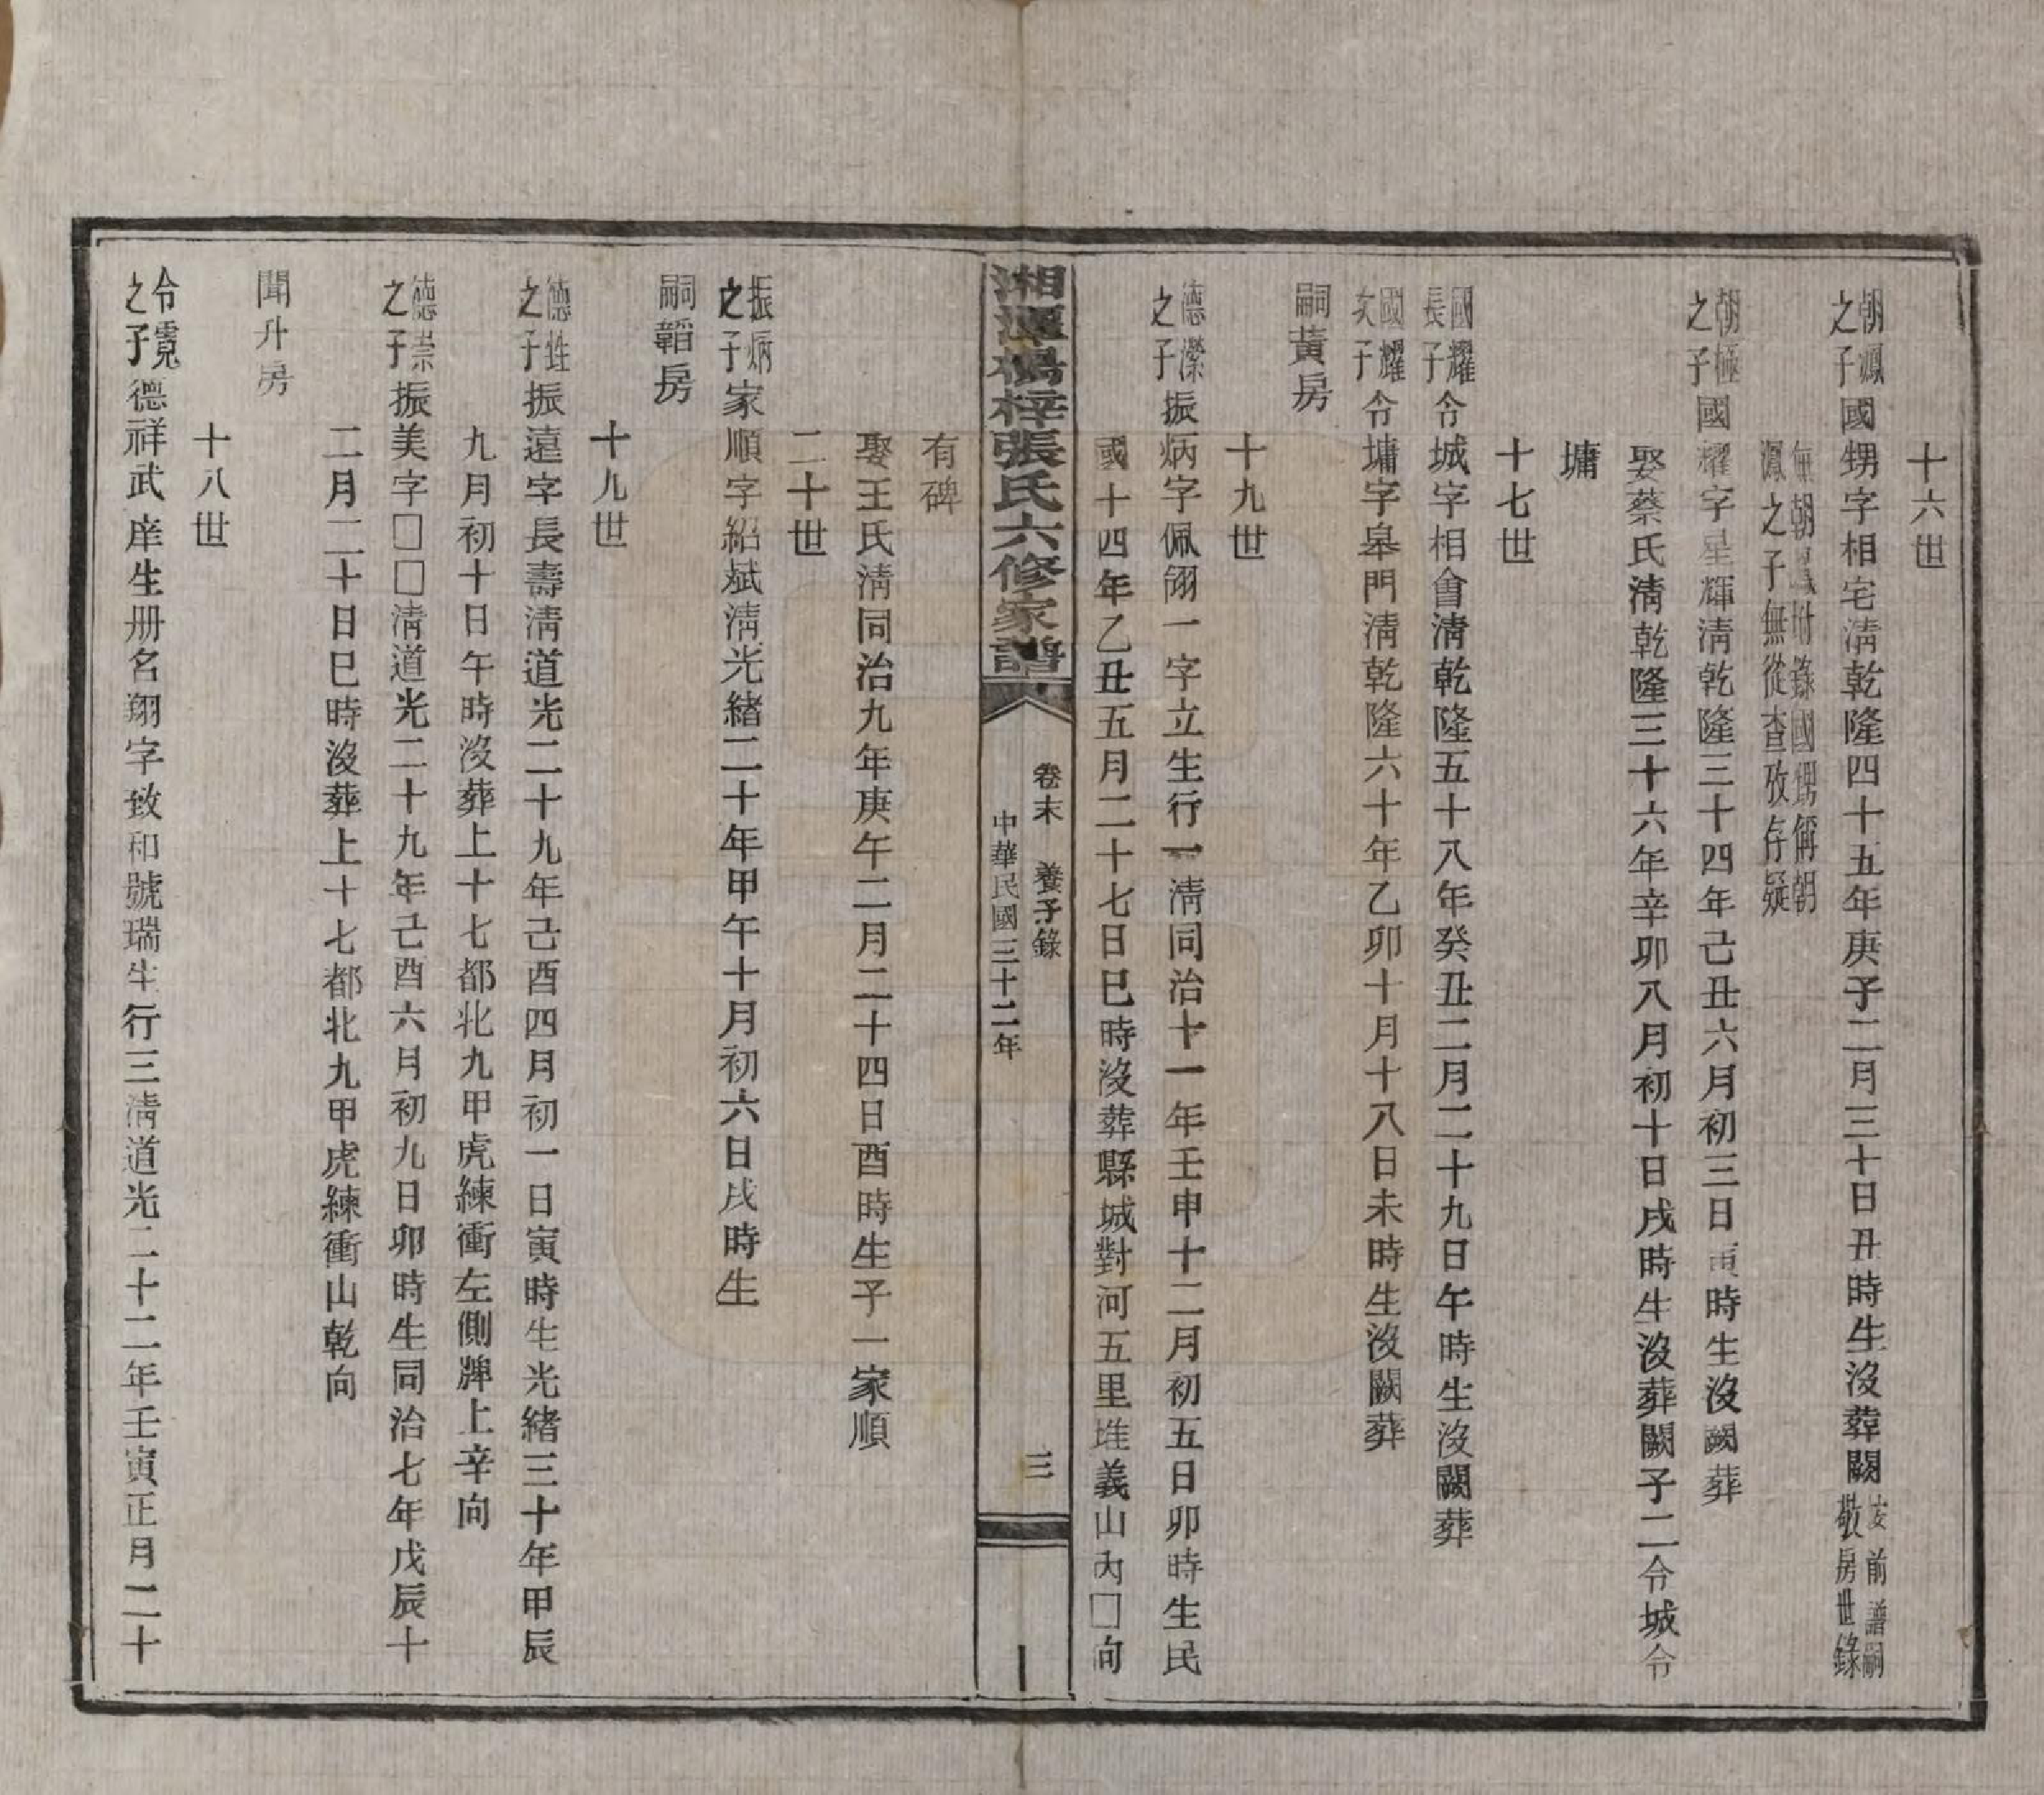 十六世
朝鳳之子國甥字相宅淸乾隆四十五年庚子二月三十日丑時生沒葬闕女前譜嗣敬房世錄
無朝鳳附錄國甥俏朝
鳳之子無從查攷存疑
朝極之子國耀字星輝淸乾隆三十四年己丑六月初三日寅時生沒闕葬
娶蔡氏淸乾隆三十六年辛卯八月初十日戌時生沒葬闕子二令城令
墉
十七世
國耀長子令城字相會淸乾隆五十八年癸丑二月二十九日午時生沒闕葬
國耀次子令墉字皋門淸乾隆六十年乙卯十月十八日未時生沒闕葬
嗣黃房
十九世
德濼之子振炳字佩翊一字立生行一淸同治十一年壬申十二月初五日卯時生民
國十四年乙丑五月二十七日巳時沒葬縣城對河五里堆義山內□向
湘潭楊梓張氏六修家譜
卷末 養子錄
三
中華民國三十二年
有碑
娶王氏淸同治九年庚午二月二十四日酉時生子一家順
二十世
振炳之子家順字紹斌淸光緖二十年甲午十月初六日戌時生
嗣韜房
十九世
德甡之子振遠字長壽淸道光二十九年己酉四月初一日寅時生光緖三十年甲辰
九月初十日午時沒葬上十七都北九甲虎練衝左側牌上辛向
德崇之子振美字□□淸道光二十九年己酉六月初九日卯時生同治七年戊辰十
二月二十日巳時沒葬上十七都北九甲虎練衝山乾向
聞升房
十八世
令霓之子德祥武庠生册名翔字致和號瑞生行三淸道光二十二年壬寅正月二十